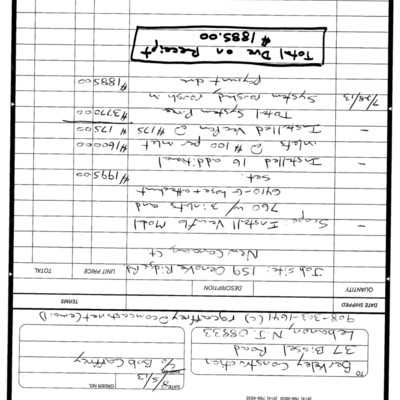 TO
Berkeley Construction
37 Bissel Road
Lebanon, N.J. 08833
908-303-1641 (c)
DATE
8/5/13
ORDER NO.
c/o Bob Caffrey
TERMS
DATE SHIPPED
QUANTITY
DESCRIPTION
UNIT PRICE
TOTAL
Job site: 159 Oenoke Ridge Rd
New Canaan, Ct
Scope: Install Vacuflo Model
760 w/ 3 inlets and
hose + attachment
set. $1995.00
- Installed 16 additional
inlets @ $100 per inlet $1600.00
- Installed VacPan @ $175 $175.00
Total System Price $3770.00
7/28/13 System roughed, rough in
payment due $1885.00
Total Due on Receipt
$1885.00